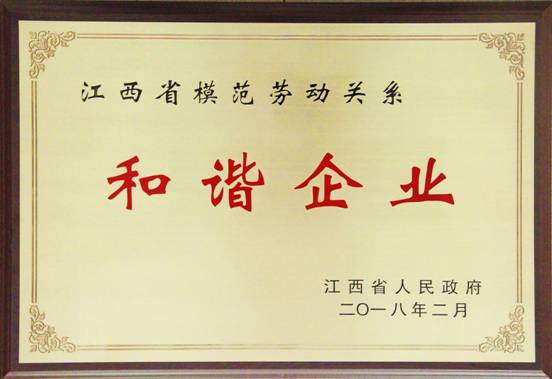 江西省模范劳动关系
和谐企业
江西省人民政府
二〇一八年二月